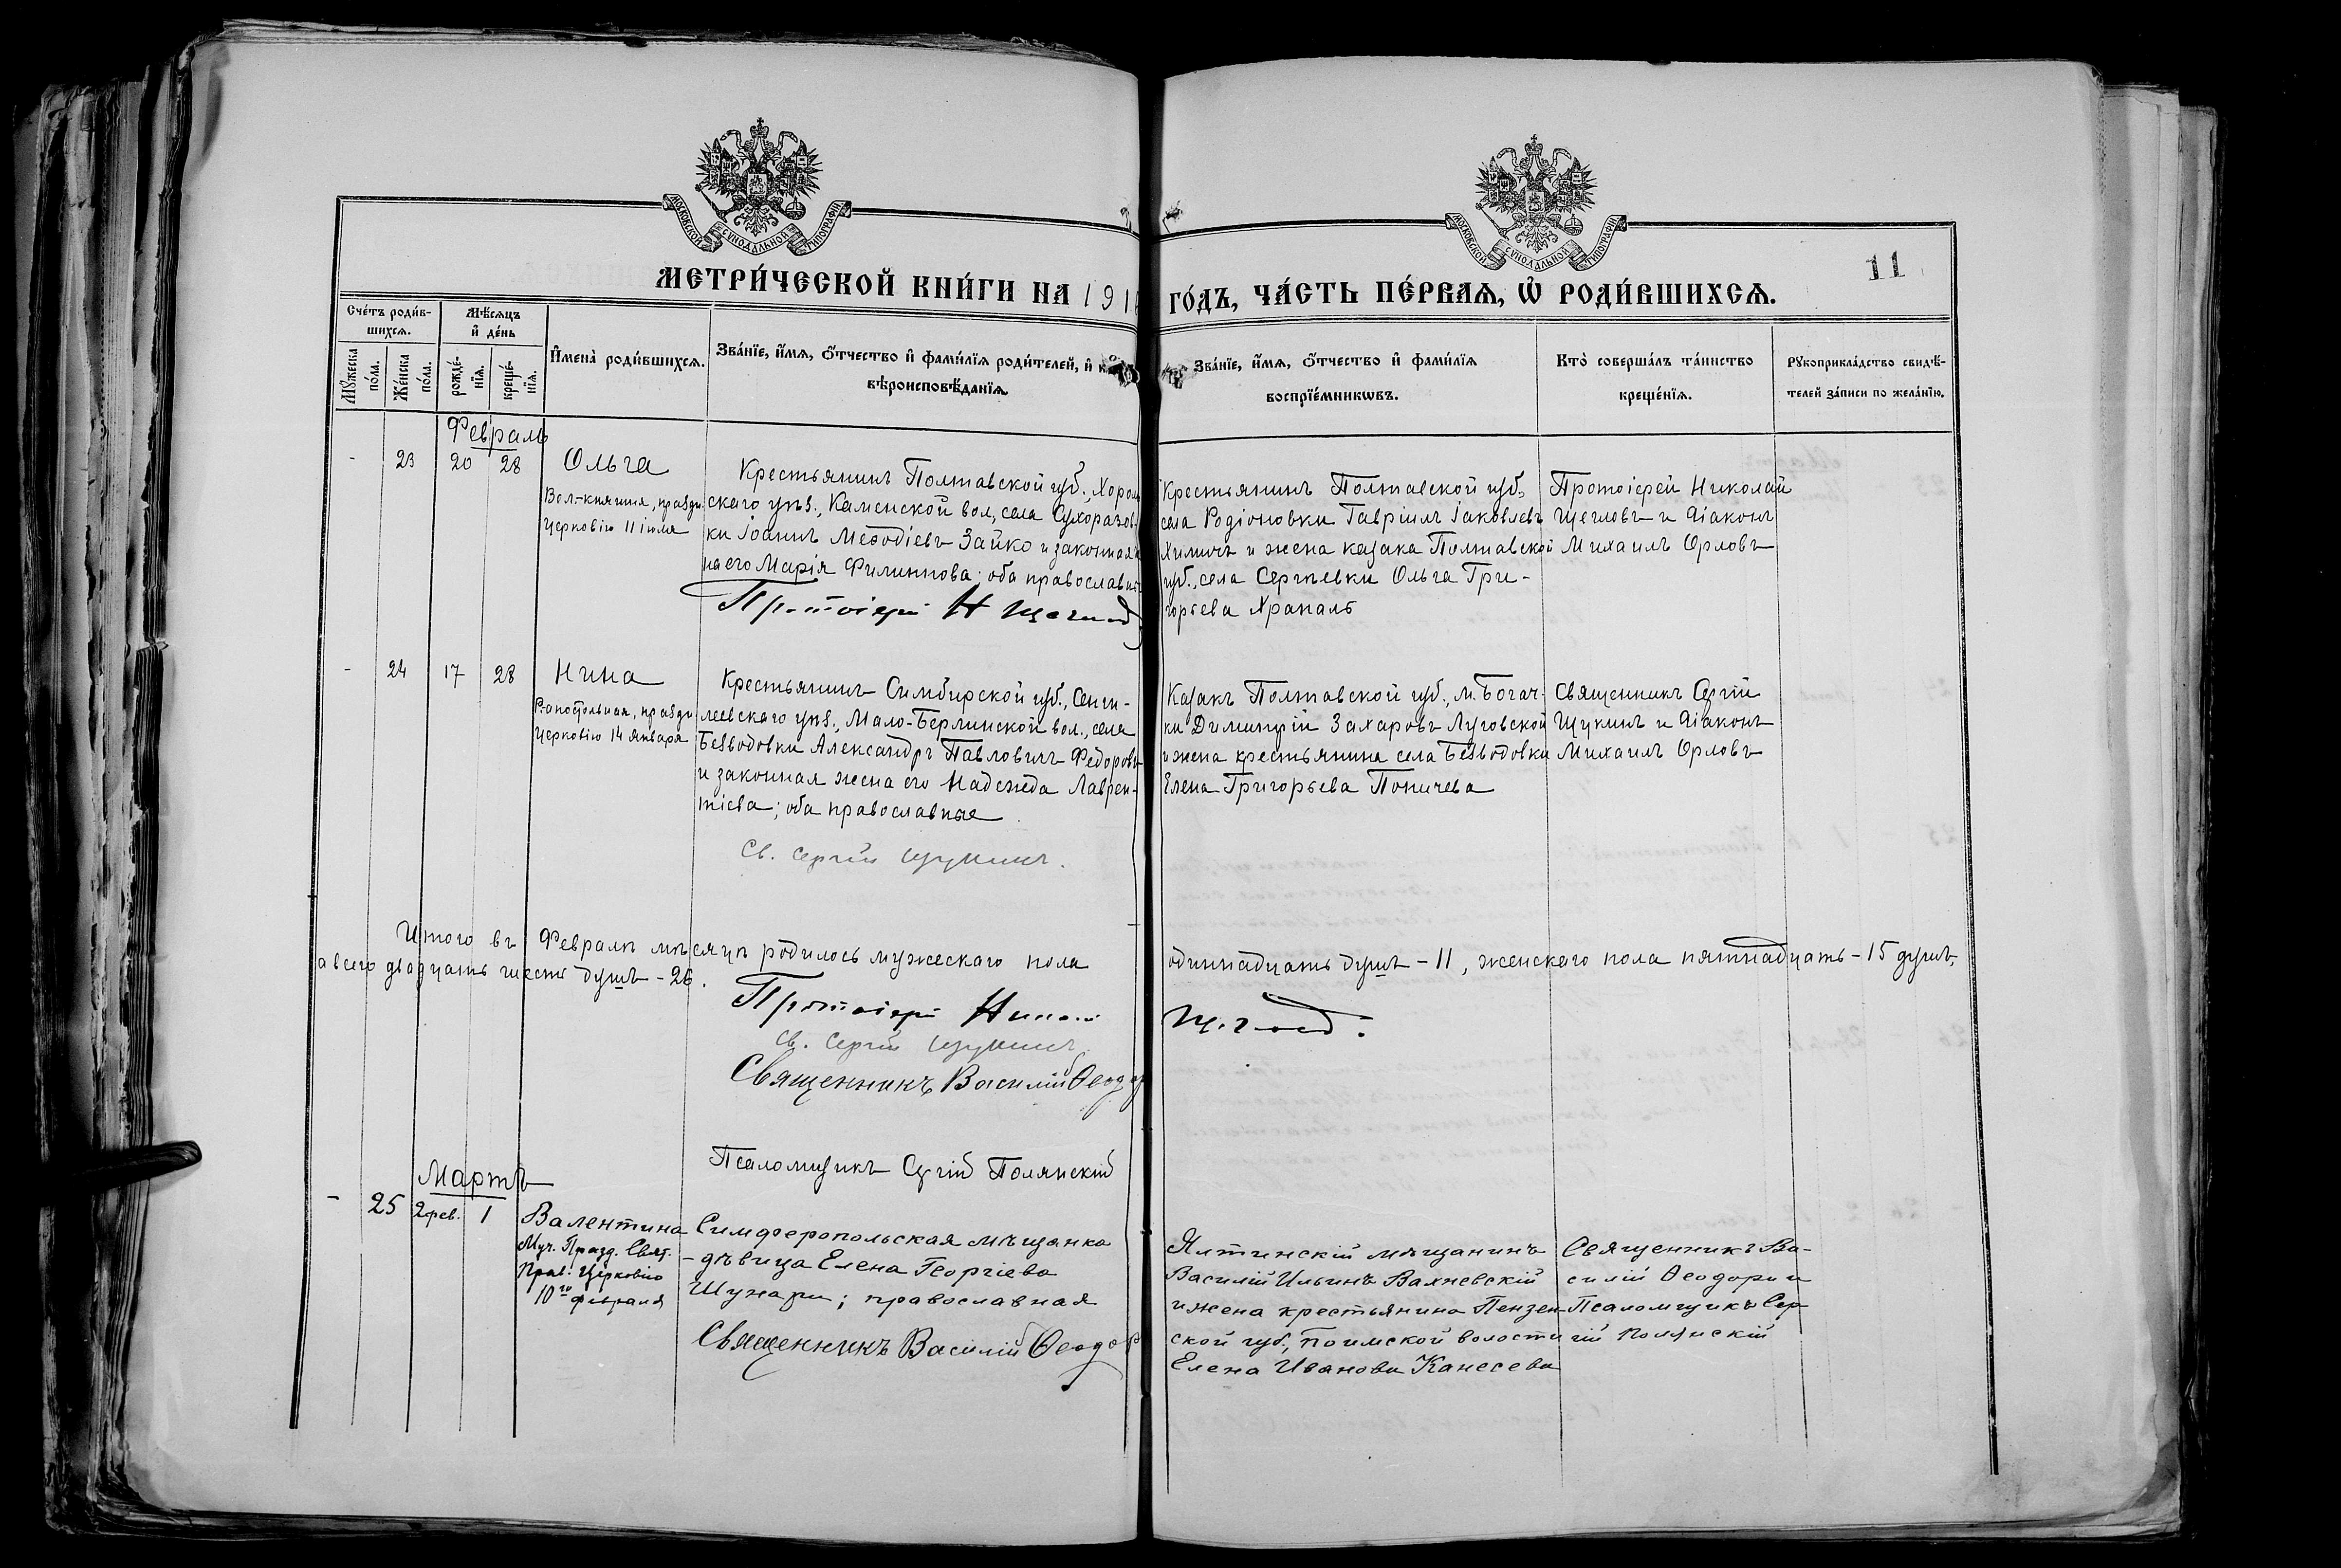 МОСКОВСКОЙ СѴНОДАЛЬНОЙ ТИПОГРАФІИ
МОСКОВСКОЙ СѴНОДАЛЬНОЙ ТИПОГРАФІИ
11
МЕТРИ́ЧЕСКОЙ КНИ́ГИ НА 191
ГО́ДЪ, ЧА́СТЬ ПЕ́РВАѦ, Ѡ҆ РОДИ́ВШИХСѦ.
Сче́тъ роди́в-
шихсѧ.
Мѣ́сѧцъ
и҆ де́нь
Мꙋ́жеска
по́ла.
Же́нска
по́ла.
рожде́-
нїѧ.
креще́-
нїѧ.
И҆мена̀ роди́вшихсѧ.
Зва́нїе, и҆́мѧ, ѻ҆́тчество и҆ фами́лїѧ роди́телей, и҆ к
вѣроисповѣ́данїѧ.
Зва́нїе, и҆́мѧ, ѻ҆́тчество и҆ фами́лїѧ
воспрїе́мникѡвъ.
Кто̀ соверша́лъ та́инство
креще́нїѧ.
Рꙋкоприкла́дство свидѣ́-
телей за́писи по жела́нїю.
Февраль
- 23 20 28 Ольга
Вел. княгиня, праздн.
Церковію 11 іюля
Крестьянинъ Полтавской губ., Хороль
скаго уѣз., Каменской вол., села Сухоразов-
ки Іоаннъ Меѳодіевъ Зайко и законная
на его Марія Филиппова; оба православн
Протоіерей Н Щегловъ
Крестьянинъ Полтавской губ.,
села Родіоновки Гавріилъ Іаковлевъ
Химичъ и жена казака Полтавской
губ., села Сергѣевки Ольга Гри-
горьева Храпаль
Протоіерей Николай
Щегловъ и діаконъ
Михаилъ Орловъ
- 24 17 28 Нина
Равноапостольная, праздн.
Церковію 14 Января
Крестьянинъ Симбирской губ., Сенги-
леевскаго уѣз., Мало-Берлинской вол., села
Безводовки Александръ Павловичъ Федоровъ
и законная жена его Надежда Лаврен-
тіева; оба православные
Св. Сергій Щукинъ.
Казакъ Полтавской губ., м. Богач-
ки Димитрій Захаровъ Луговской
и жена крестьянина села Безводовки
Елена Григорьева Поничева
Священникъ Сергій
Щукинъ и діаконъ
Михаилъ Орловъ
Итого въ Февралѣ мѣсяцѣ родилось мужескаго пола
одиннадцать душъ - 11, женскаго пола пятнадцать - 15 душъ,
а всего двадцать шесть душъ - 26.
Протоіерей Николай
Щегловъ.
Св. Сергій Щукинъ
Священникъ Василій Ѳеодор
Псаломщикъ Сергій Полянскій
Мартъ
- 25 2 фев. 1 Валентина
Муч. Празд. Свят.
Прав. Церковію
10го февраля
Симферопольская мѣщанка
- дѣвица Елена Георгіева
Шунари; православная
Священникъ Василій Ѳеодор
Ялтинскій мѣщанинъ
Василій Ильинъ Вахневскій
и жена крестьянина Пензен-
ской губ., Поимской волости
Елена Иванова Канесева
Священникъ Ва-
силій Ѳеодори и
Псаломщикъ Сер-
гій Полянскій